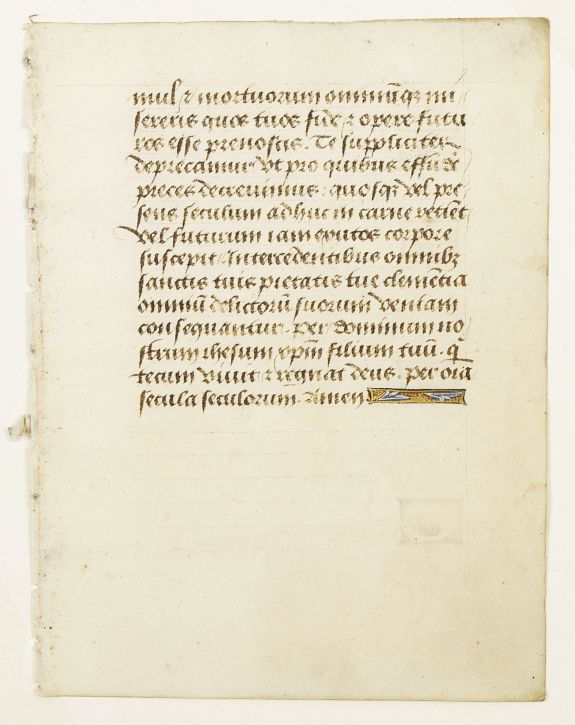 mul ⁊ mortuorum omniūq; mi
sereris quos tuos fide ⁊ opere futu
ros esse prenoscis. Te suppliciter
deprecamur vt pro quibus effūde
preces decreuimus. quosq; vel pre
sens seculum adhuc in carne retinēt
vel futurum iam exutos corpore
suscepit. Intercedentibus omnib;
sanctis tuis pietatis tue clemētia
omniū delictorū suorum veniam
consequantur. per dominum no
strum ihesum xpm̄ filium tuū. q̄
tecum viuit ⁊ regnat deus. per oīa
secula seculorum. Amen